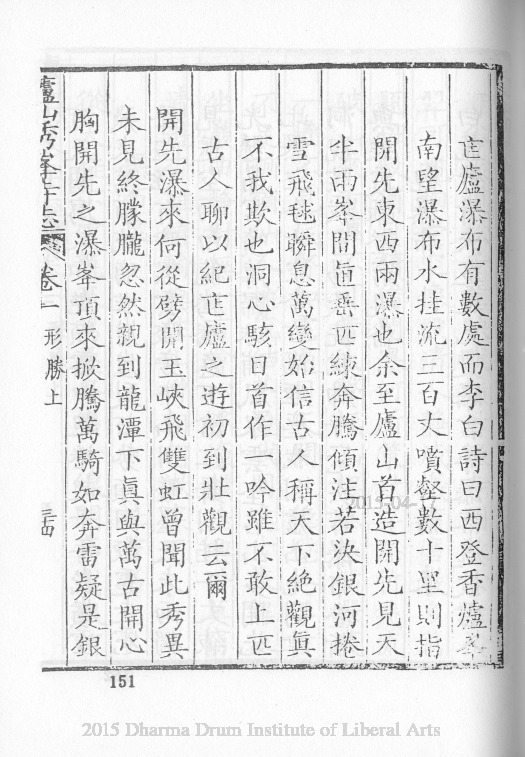 匡廬瀑布有數處而李白詩曰西登香爐峯
南望瀑布水挂流三百丈噴壑數十里則指
開先東西兩瀑也余至廬山首造開先見天
半兩峯間直垂匹練奔騰傾注若決銀河捲
雪飛毬瞬息萬變始信古人稱天下絕觀眞
不我欺也洞心駭目首作一吟雖不敢上匹
古人聊以紀匡廬之遊初到壯觀云爾
開先瀑來何從劈開玉峽飛雙虹曾聞此秀異
未見終朦朧忽然親到龍潭下眞與萬古開心
胸開先之瀑峯頂來掀騰萬騎如奔雷疑是銀
廬山秀峯寺志 卷一 形勝上
三四
151
2015 Dharma Drum Institute of Liberal Arts